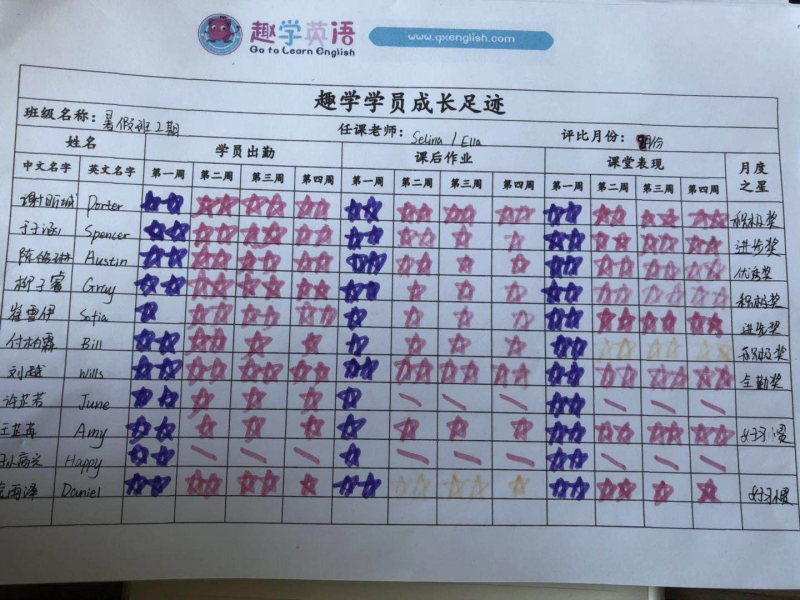 趣学英语
Go to Learn English
www.qxenglish.com
趣学学员成长足迹
班级名称: 暑假班2期 任课老师: Selina / Ella 评比月份: 月份
姓名 学员出勤 课后作业 课堂表现 月度之星
中文名字 英文名字 第一周 第二周 第三周 第四周 第一周 第二周 第三周 第四周 第一周 第二周 第三周 第四周
Porter 积极奖
Spencer 进步奖
Austin 优秀奖
柳子睿 Gray 积极奖
崔雪伊 Sofia 进步奖
付柏霖 Bill 积极奖
刘越 Wills 全勤奖
许芷若 June
Amy 好习惯
Happy
雨泽 Daniel 好习惯